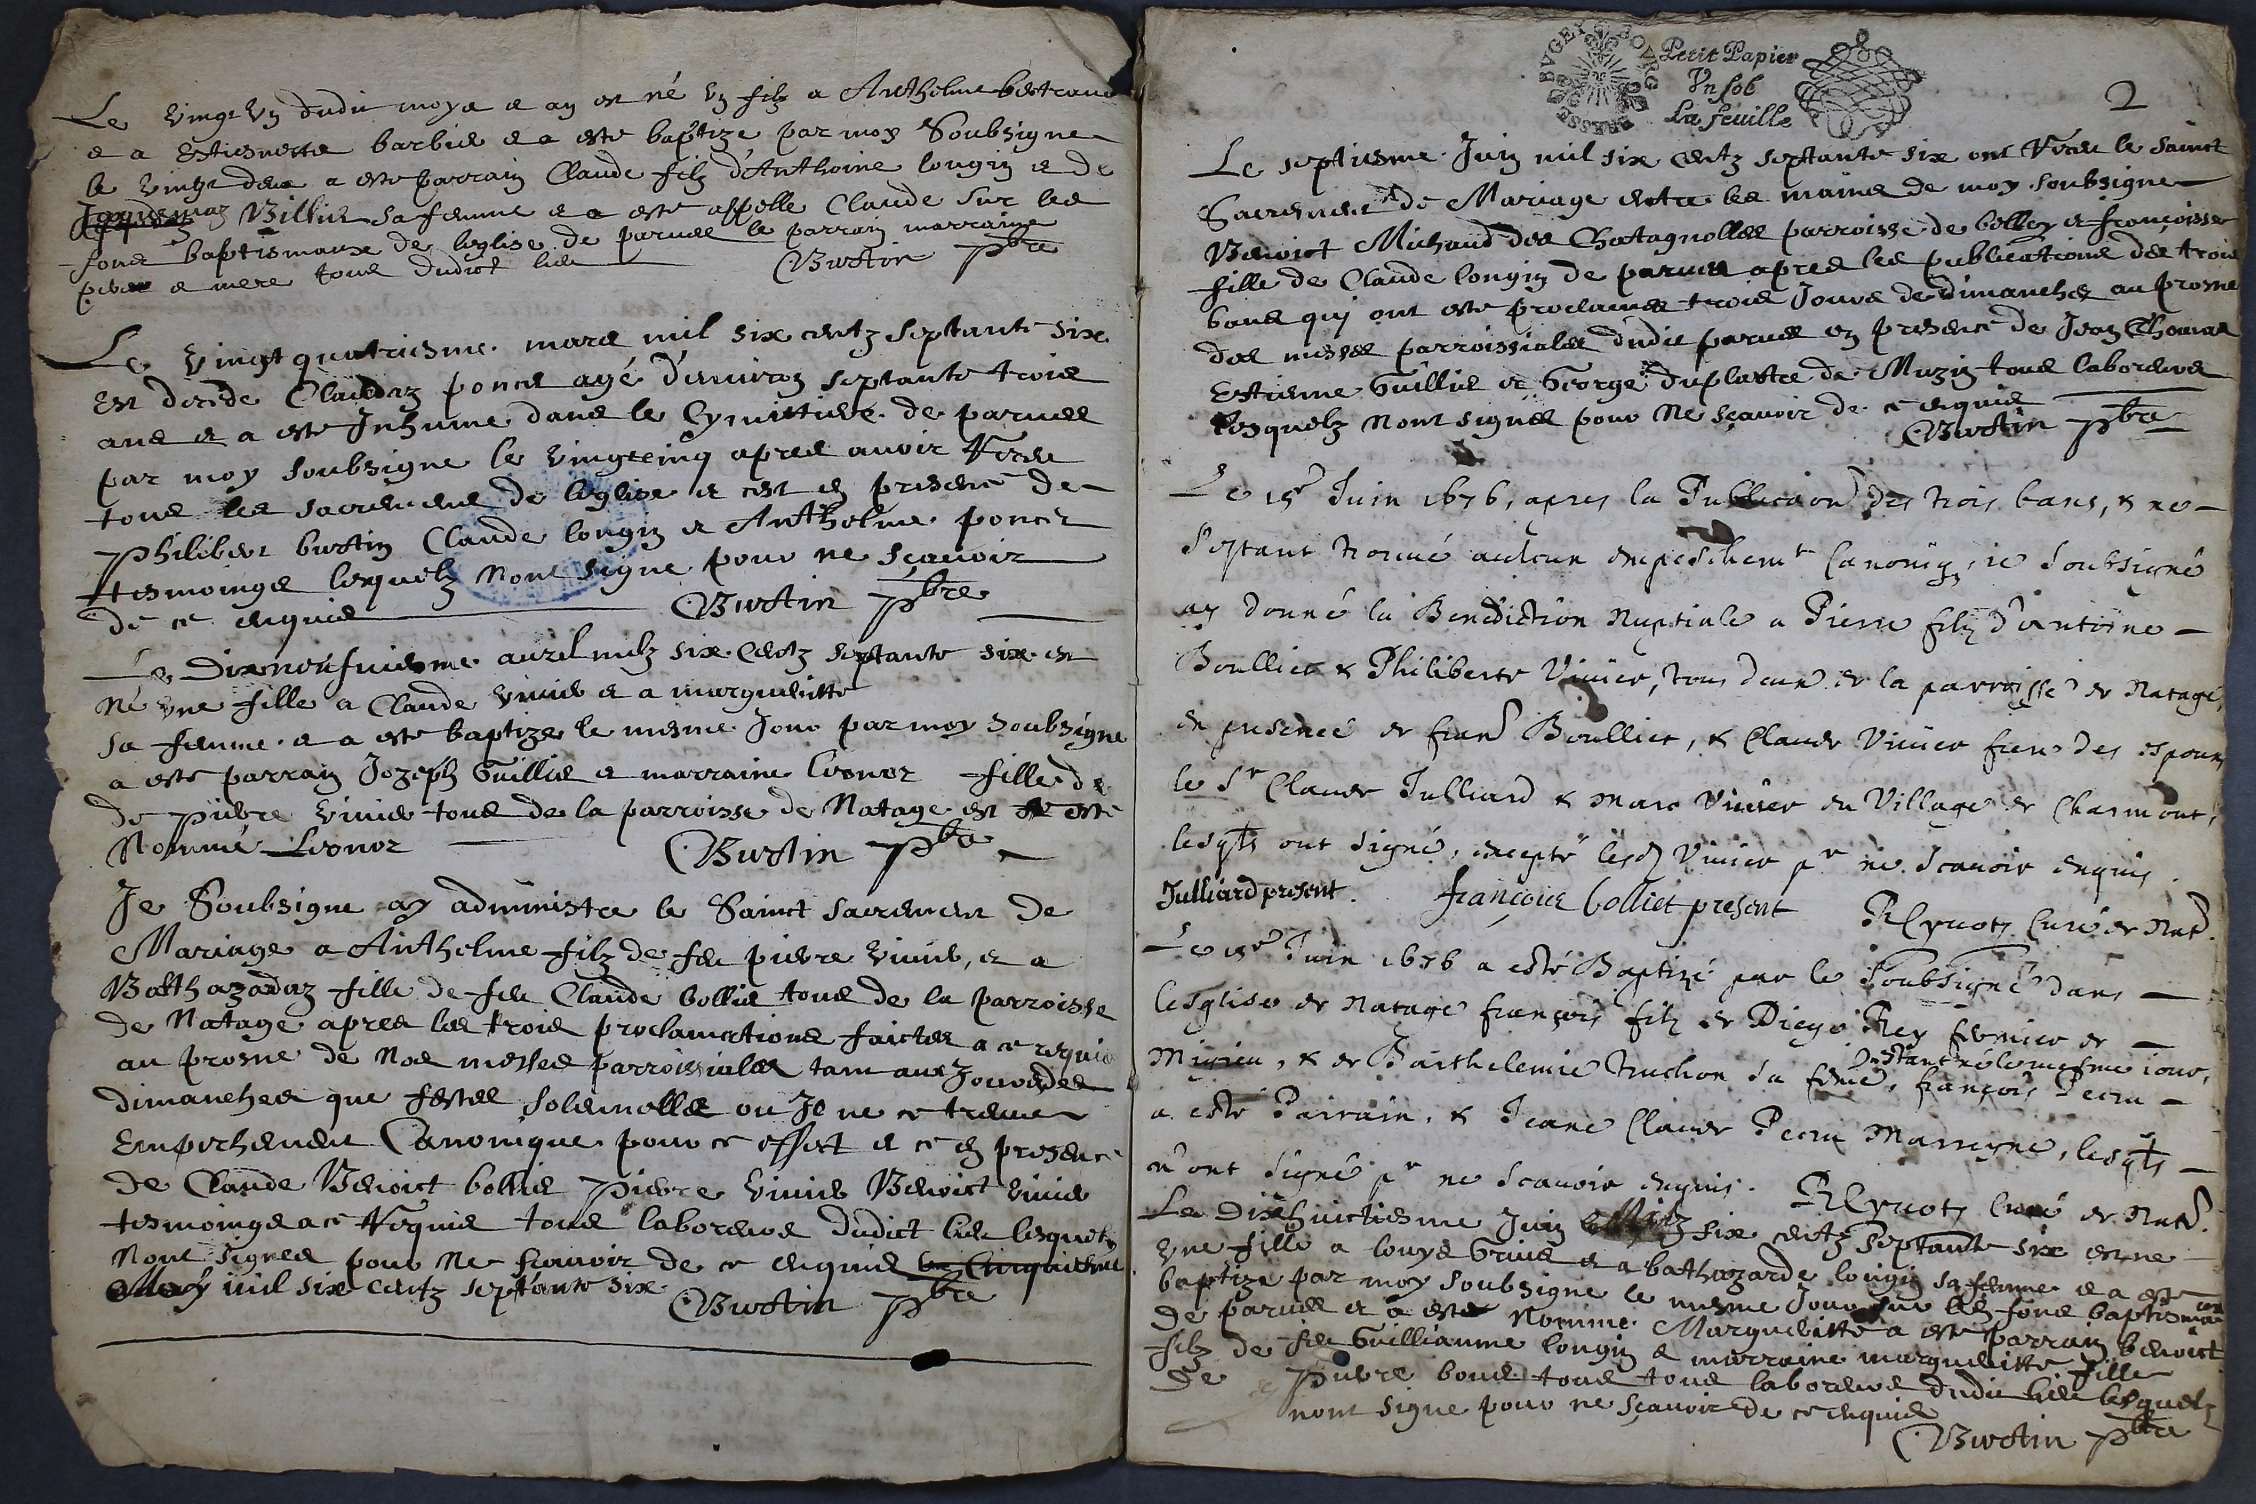 Le vingt un dudit moys et an est né un filz a Anthelme bertrand
et a Estiennette barbier et a esté baptize par moy Soubsigne
le vingt deux a este parrain Claude filz d'Anthoine longin et de
Billiet sa femme et a esté appelle Claude sur les
fons baptismaux de leglise de parues le parrain marraine
pere et mere tous dudict lieu Burtin pbre
Le vingt quatriesme mars mil six centz septante six
est decede Claudaz poncet agé d'enuiron septante trois
ans et a esté Inhume dans le Cymitiere de parues
par moy soubsigne le vingtcinq apres auoir Receu
tous les sacremens de leglise et cest en presence de
philibert burtin Claude longin et Anthelme poncet
tesmoings lesquelz nont signe pour ne sçauoir
de ce enquis Burtin pbre
Le Dixneufuiesme auril milz six centz septante six est
né une fille a Claude viuier et a margueritte
sa femme et a esté baptizee le mesme Jour par moy soubsigne
a esté parrain Jozeph Guilliet et marraine Leonor fille de
de pierre viuier tous de la parroisse de Natage et a esté
Nommé Leonor Burtin pbre
Je Soubsigne ay administre le Sainct sacrement de
Mariage a Anthelme filz de feu pierre viuier, et a
Balthazardaz fille de feu Claude bolliet tous de la parroisse
de Natage apres les trois proclamations faictes a ce requis
au prosne de nos messes parroissiales tant aux Jours des
dimanches que festes solemnelles ou Je ne ce treuue
Empechement Canonique pour ce effect et ce en presence
de Claude Benoict bolliet pierre viuier Benoict viuier
tesmoings a ce Requis tous laboreurs dudict lieu lesquelz
Nont signes pour ne scauoir de ce enquis le Cinquiesme
May mil six centz septante six Burtin pbre
BRESSE BVGEY BOVRG
Petit Papier
Vn sol
La feuille
2
Le septiesme Juin mil six centz septante six ont Receu le sainct
Sacrement de Mariage entre les mains de moy soubsigne
Benoict Michaud des Chatagnolles parroisse de belley et françoisse
fille de Claude longin de parues apres les publications des trois
bans quj ont esté proclames trois Jours de dimanches au prosne
des messes parroissiales dudit parues en presence de Jean Thomas
Estienne Guilliet et George duplastre de Muzin tous laboreurs
lesquelz nont signes pour ne sçauoir de ce enquis
Burtin pbre
Le 15e Juin 1676, apres la Publicaon des trois bans, & ne
s'estant trouué aulcun empeschemt Canoniq, ie soubsigné
ay donné la Benediction Nuptiale a Pierre filz d'Antoine
Boullier & Philiberte Viuier, tous deux de la parroisse de Natage,
en presence de fran Boullier, & Claude Viuier frere des espoux,
le Sr Claude Julliard & Marc Viuier du Village de Charmont,
lesqls ont signé, excepté lesd Viuier pr ne scauoir enquis.
Julliard present. françois bolliet present Curé de Nat.
Le 15e Juin 1676 a esté Baptizé par le soubsigné dans
lesglise de Natage françois filz de Diego Rey fermier de
& de Barthelemie Truchon sa feme, estant né le mesme iour, françois Pecru
a esté Parrain, & Jeane Claude Pecru Marreyne, lesqls
n'ont signé pr ne scauoir enquis. Curé de Nat.
Le Dixhuictiesme Juin six centz septante six est ne
une fille a louys Griue et a bathazarde longin sa femme et a este
baptize par moy soubsigne le mesme Jour sur les fons baptismaux
de parues et a esté Nomme Margueritte a este parrain benoict
filz de feu Guilliaume longin et marraine marguerite fille
De pierre bouet tous tous laboreurs dudit lieu lesquelz
nont signe pour ne sçauoir de ce enquis
Burtin pbre